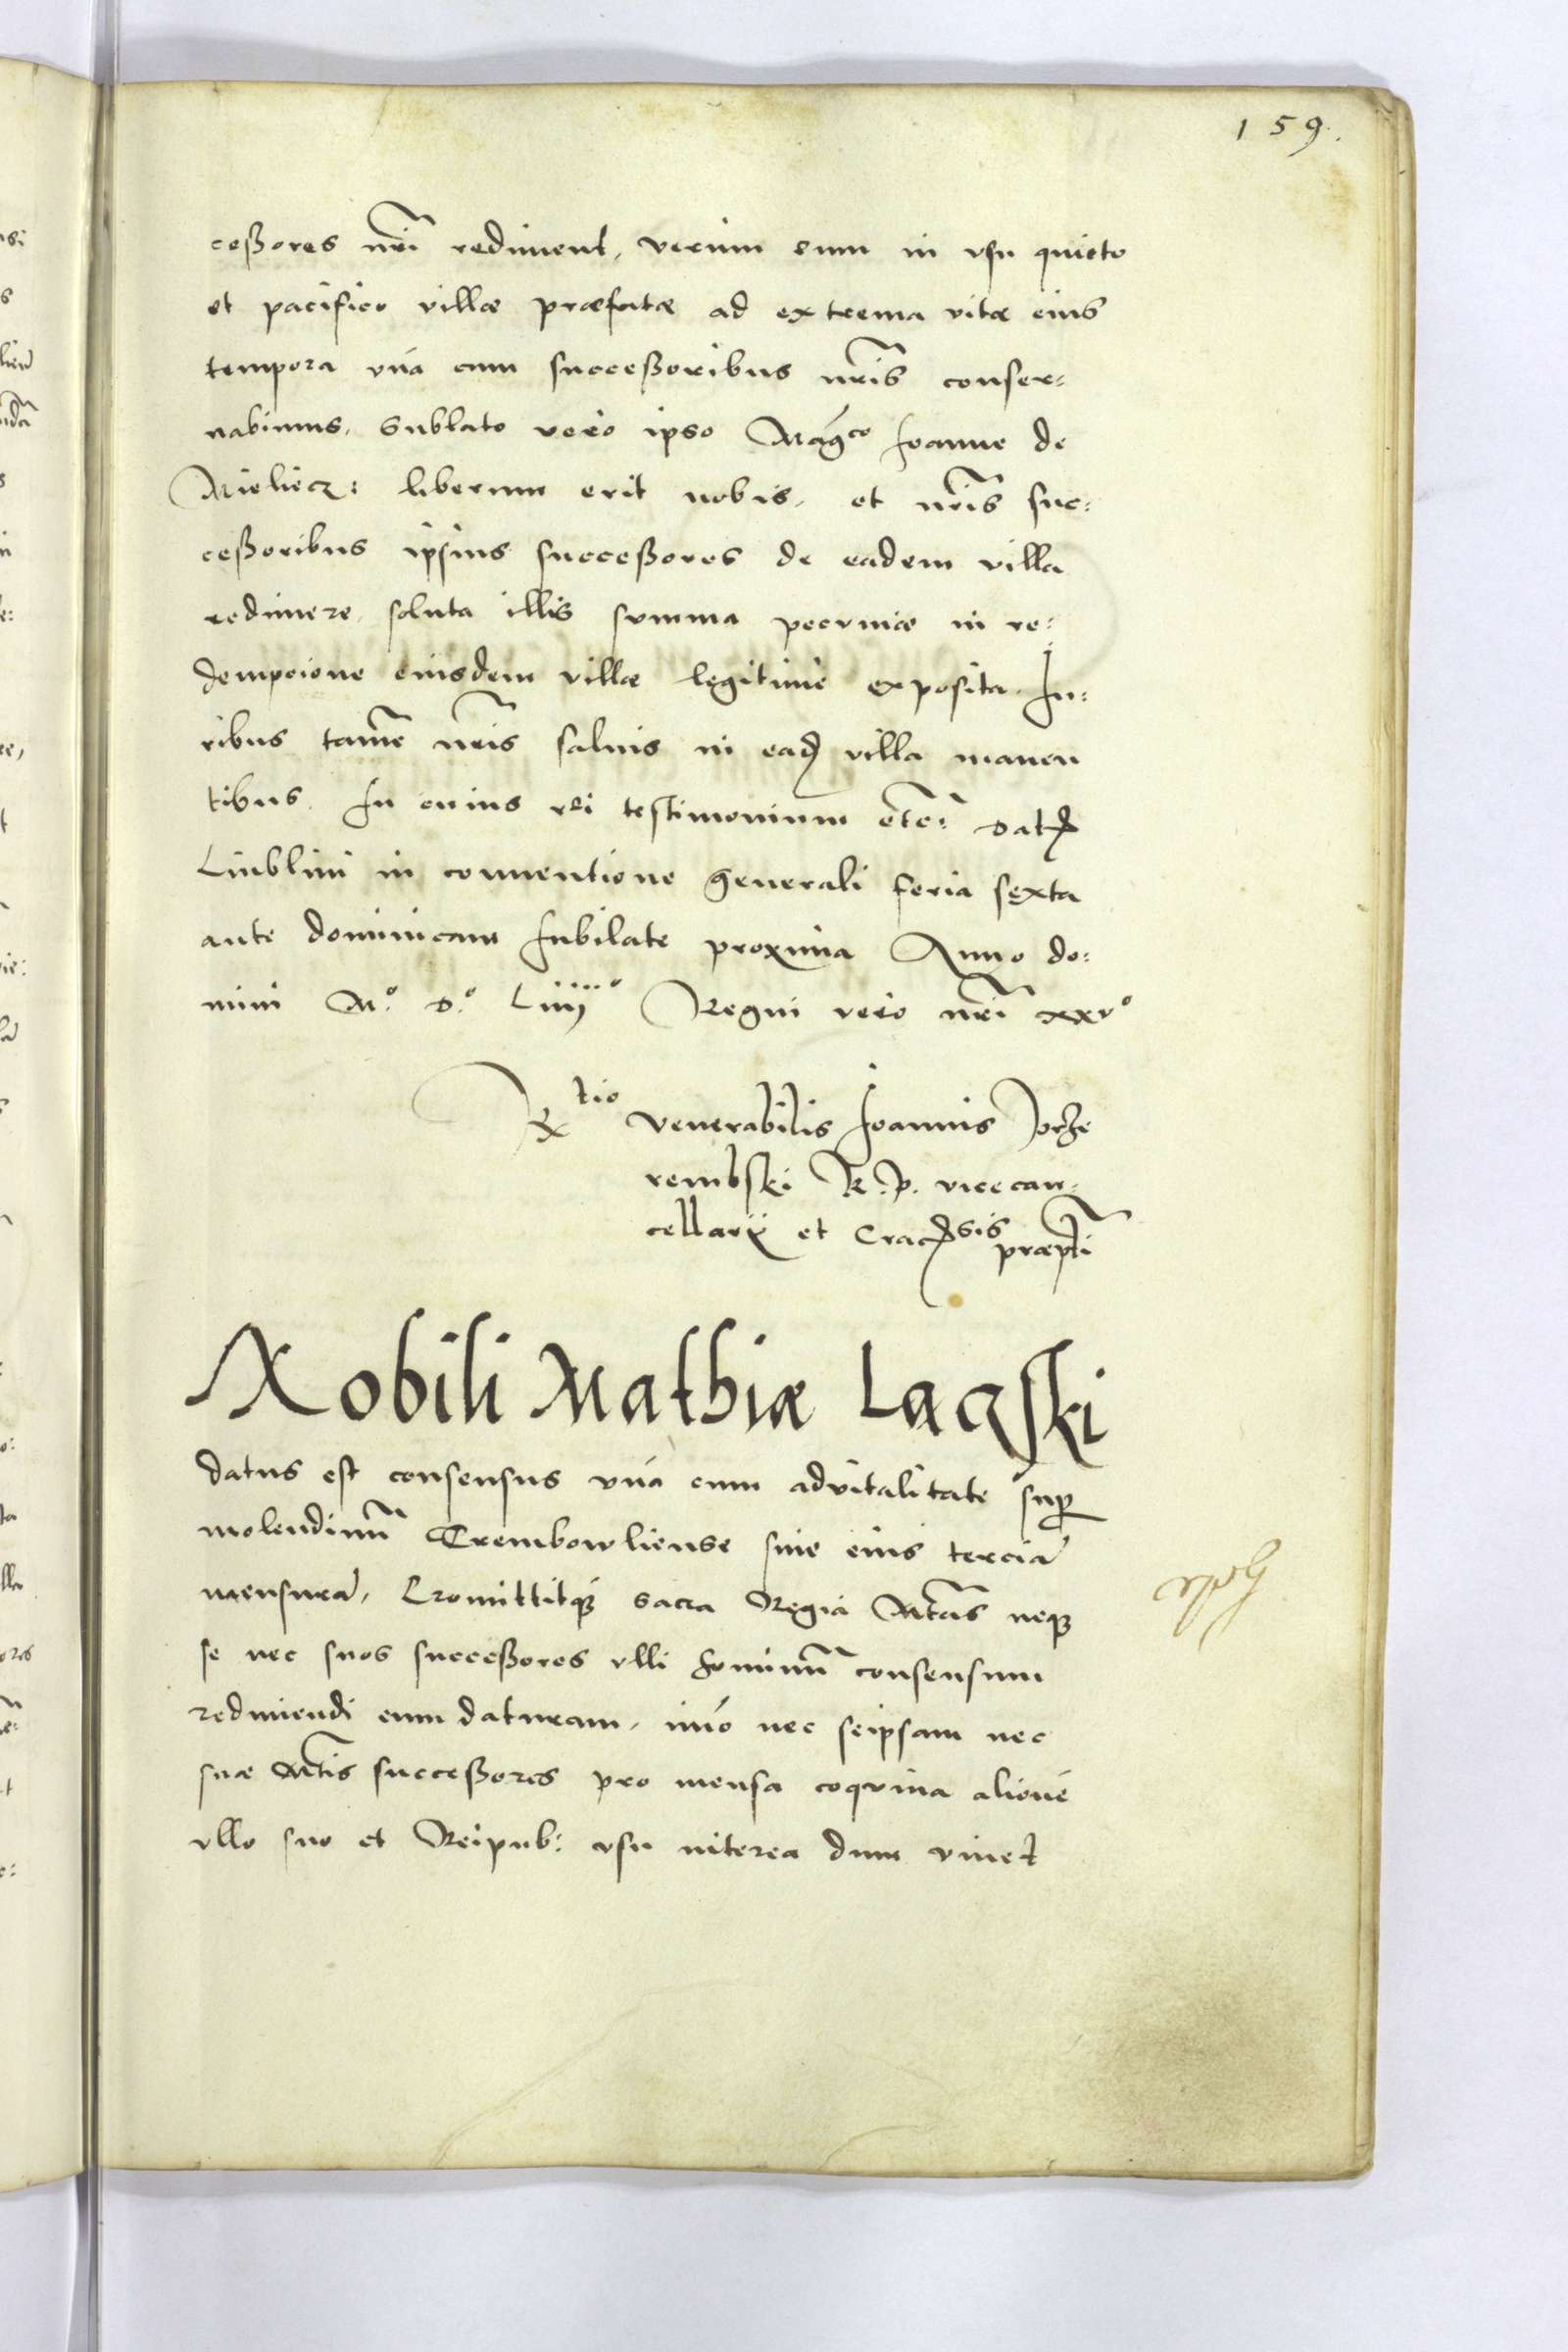 159.
ceßores nr̃i rediment, verum eum in vsu quieto
et pacifico villæ præfatæ ad extrema vitæ eius
tempora vná cum succeßoribus nr̃is conser:
uabimus. Sublato vero ipso Mag̃co Joanne de
Mieliecz: liberum erit nobis, et nr̃is suc:
ceßoribus ipsius succeßores de eadem villa
redimere, soluta illis summa pecuniæ in re:
dempcione eiusdem villæ legitime exposita. Ju:
ribus tamẽ nr̃is saluis in ead villa manen
tibus. In cuius rei testimonium etc̃: Dat
Liublini in conuentione generali feria sexta
ante dominicam Jubilate proxima Anno do:
mini Mº. Dº. Liiijº Regni vero nr̃i xxvº
Rtio venerabilis Joannis Prze
rembski R. P. vicecan:
cellarij et Cracsis præpti
Nobili Mathiæ Laczski
datus est consensus vná cum aduitalitate sup
molendinũ Trembowliense siue eius terciã
mensurã, Promittitq; Sacra Regia Mtãs neq;
se nec suos succeßores vlli hominũ consensum
redimendi eum daturam, imó nec seipsam nec
suæ Mtis succeßores pro mensa coquina alioué
vllo suo et Reipub: vsu interea dum viuet